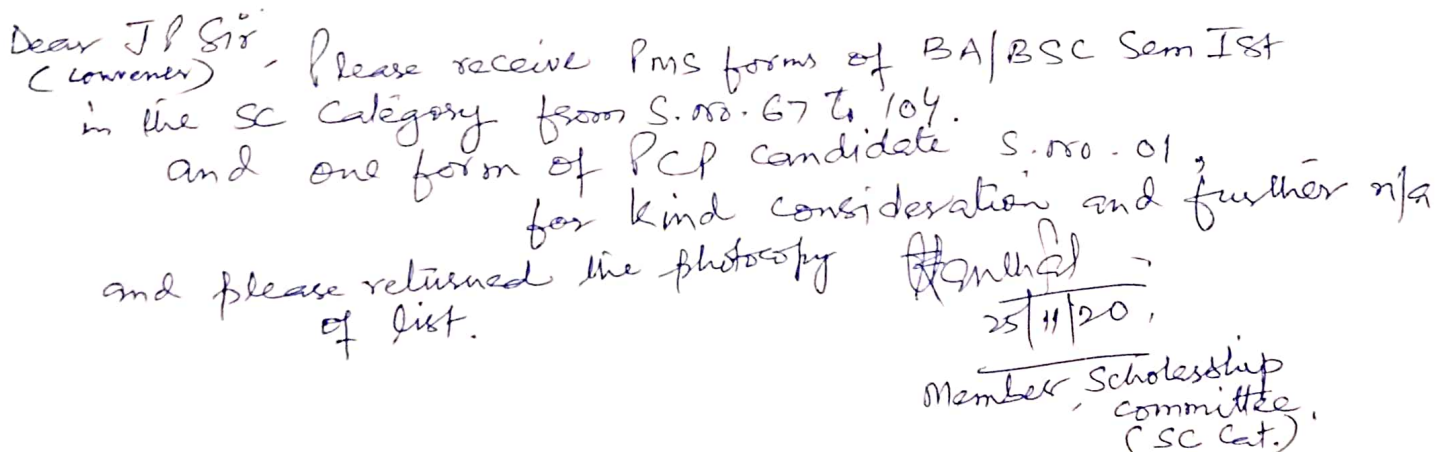 Dear JP Sir
(convener), Please receive PMS forms of BA/BSC Sem Ist
in the SC Category from S.no. 67 to 104.
and one form of PCP candidate S.no. 01,
for kind consideration and further n/a
and please returned the photocopy
of list.
25/11/20,
Member, Scholarship
committee,
(SC Cat.)